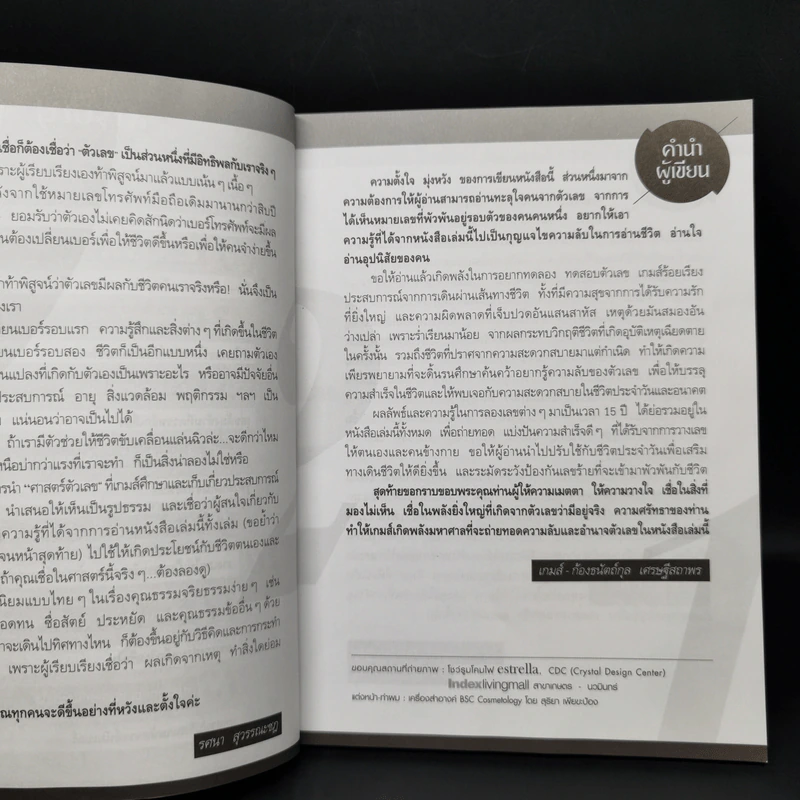 เชื่อก็ต้องเชื่อว่า "ตัวเลข" เป็นส่วนหนึ่งที่มีอิทธิพลกับเราจริง ๆ
ราะผู้เรียบเรียงเองท้าพิสูจน์มาแล้วแบบเน้น ๆ เนื้อ ๆ
ังจากใช้หมายเลขโทรศัพท์มือถือเดิมมานานกว่าสิบปี
ยอมรับว่าตัวเองไม่เคยคิดสักนิดว่าเบอร์โทรศัพท์จะมีผล
นต้องเปลี่ยนเบอร์เพื่อให้ชีวิตดีขึ้นหรือเพื่อให้คนจำง่ายขึ้น
าท้าพิสูจน์ว่าตัวเลขมีผลกับชีวิตคนเราจริงหรือ! นั่นจึงเป็น
งเรา
ยนเบอร์รอบแรก ความรู้สึกและสิ่งต่าง ๆ ที่เกิดขึ้นในชีวิต
ยนเบอร์รอบสอง ชีวิตก็เป็นอีกแบบหนึ่ง เคยถามตัวเอง
นแปลงที่เกิดกับตัวเองเป็นเพราะอะไร หรืออาจมีปัจจัยอื่น
ประสบการณ์ อายุ สิ่งแวดล้อม พฤติกรรม ฯลฯ เป็น
แน่นอนว่าอาจเป็นไปได้
ถ้าเรามีตัวช่วยให้ชีวิตขับเคลื่อนแล่นฉิวล่ะ...จะดีกว่าไหม
หนือบ่ากว่าแรงที่เราจะทำ ก็เป็นสิ่งน่าลองไม่ใช่หรือ
รนำ "ศาสตร์ตัวเลข" ที่เกมส์ศึกษาและเก็บเกี่ยวประสบการณ์
นำเสนอให้เห็นเป็นรูปธรรม และเชื่อว่าผู้สนใจเกี่ยวกับ
ความรู้ที่ได้จากการอ่านหนังสือเล่มนี้ทั้งเล่ม (ขอย้ำว่า
จนหน้าสุดท้าย) ไปใช้ให้เกิดประโยชน์กับชีวิตตนเองและ
ถ้าคุณเชื่อในศาสตร์นี้จริง ๆ...ต้องลองดู)
นิยมแบบไทย ๆ ในเรื่องคุณธรรมจริยธรรมง่าย ๆ เช่น
อดทน ซื่อสัตย์ ประหยัด และคุณธรรมข้ออื่น ๆ ด้วย
าจะเดินไปทิศทางไหน ก็ต้องขึ้นอยู่กับวิธีคิดและการกระทำ
เพราะผู้เรียบเรียงเชื่อว่า ผลเกิดจากเหตุ ทำสิ่งใดย่อม
ณทุกคนจะดีขึ้นอย่างที่หวังและตั้งใจค่ะ
รศนา สุวรรณะชฎ
คำนำ
ผู้เขียน
ความตั้งใจ มุ่งหวัง ของการเขียนหนังสือนี้ ส่วนหนึ่งมาจาก
ความต้องการให้ผู้อ่านสามารถอ่านทะลุใจคนจากตัวเลข จากการ
ได้เห็นหมายเลขที่พัวพันอยู่รอบตัวของคนคนหนึ่ง อยากให้เอา
ความรู้ที่ได้จากหนังสือเล่มนี้ไปเป็นกุญแจไขความลับในการอ่านชีวิต อ่านใจ
อ่านอุปนิสัยของคน
ขอให้อ่านแล้วเกิดพลังในการอยากทดลอง ทดสอบตัวเลข เกมส์ร้อยเรียง
ประสบการณ์จากการเดินผ่านเส้นทางชีวิต ทั้งที่มีความสุขจากการได้รับความรัก
ที่ยิ่งใหญ่ และความผิดพลาดที่เจ็บปวดอันแสนสาหัส เหตุด้วยมันสมองอัน
ว่างเปล่า เพราะร่ำเรียนมาน้อย จากผลกระทบวิกฤติชีวิตที่เกิดอุบัติเหตุเฉียดตาย
ในครั้งนั้น รวมถึงชีวิตที่ปราศจากความสะดวกสบายมาแต่กำเนิด ทำให้เกิดความ
เพียรพยายามที่จะดิ้นรนศึกษาค้นคว้าอยากรู้ความลับของตัวเลข เพื่อให้บรรลุ
ความสำเร็จในชีวิตและให้พบเจอกับความสะดวกสบายในชีวิตประจำวันและอนาคต
ผลลัพธ์และความรู้ในการลองเลขต่าง ๆ มาเป็นเวลา 15 ปี ได้ย่อรวมอยู่ใน
หนังสือเล่มนี้ทั้งหมด เพื่อถ่ายทอด แบ่งปันความสำเร็จดี ๆ ที่ได้รับจากการวางเลข
ให้ตนเองและคนข้างกาย ขอให้ผู้อ่านนำไปปรับใช้กับชีวิตประจำวันเพื่อเสริม
ทางเดินชีวิตให้ดียิ่งขึ้น และระมัดระวังป้องกันเลขร้ายที่จะเข้ามาพัวพันกับชีวิต
สุดท้ายขอกราบขอบพระคุณท่านผู้ให้ความเมตตา ให้ความวางใจ เชื่อในสิ่งที่
มองไม่เห็น เชื่อในพลังยิ่งใหญ่ที่เกิดจากตัวเลขว่ามีอยู่จริง ความศรัทธาของท่าน
ทำให้เกมส์เกิดพลังมหาศาลที่จะถ่ายทอดความลับและอำนาจตัวเลขในหนังสือเล่มนี้
เกมส์ - ก้องธนัตถ์กุล เศรษฐีสถาพร
ขอบคุณสถานที่ถ่ายภาพ : โชว์รูมโคมไฟ estrella, CDC (Crystal Design Center)
Indexlivingmall สาขาเกษตร - นวมินทร์
แต่งหน้า-ทำผม : เครื่องสำอางค์ BSC Cosmetology โดย สุริยา เพียขะป้อง